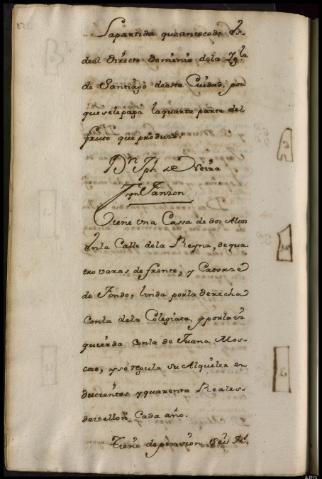 La partida quarenta es de
del Directo Dominio de la Ygl.ª
de Santiago de esta Ciudad, por
que se le paga la quarta parte del
fruto que produze.
D.n Jph de Neira
Tiene una Cassa de dos Altos
en la Calle de la Reyna, de qua
tro varas de frente, y Catorze
de Fondo, linda por la derecha
Con la de la Colegiata, y por la iz
quierda con la de Juana Mos-
coso, y se regula su Alquiler en
ducientos, y quarenta Reales
de vellon Cada año.
Tiene de pension seis R.s